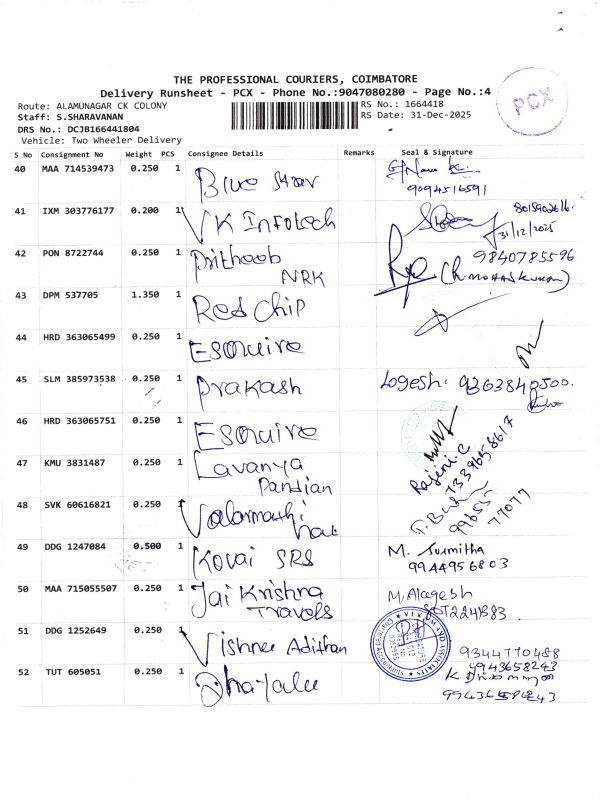 THE PROFESSIONAL COURIERS, COIMBATORE
Delivery Runsheet - PCX - Phone No.:9047080280 - Page No.:4
PCX
Route: ALAMUNAGAR CK COLONY
RS No.: 1664418
Staff: S.SHARAVANAN
RS Date: 31-Dec-2025
DRS No.: DCJB166441804
Vehicle: Two Wheeler Delivery
S No Consignment No Weight PCS Consignee Details Remarks Seal & Signature
40 MAA 714539473 0.250 1 Blue Star
9094516591
41 IXM 303776177 0.200 1 VK Infotech
31/12/2025
42 PON 8722744 0.250 1 NRK
9840785596
43 DPM 537705 1.350 1 Red Chip
44 HRD 363065499 0.250 1 Esquire
45 SLM 385973538 0.250 1 Prakash Logesh: 9363848500.
46 HRD 363065751 0.250 1 Esquire
Rajini.C
7339658617
47 KMU 3831487 0.250 1 Lavanya
Pandian
48 SVK 60616821 0.250 1 Valarmathi
77077
49 DDG 1247084 0.500 1 Kovai SRS M. Surmitha
9944956803
50 MAA 715055507 0.250 1 Jai Krishna
Travels
M. Alagesh
51 DDG 1252649 0.250 1 Vishnu Adithan
9344770488
9943658243
52 TUT 605051 0.250 1 Dhayalu
9943658243